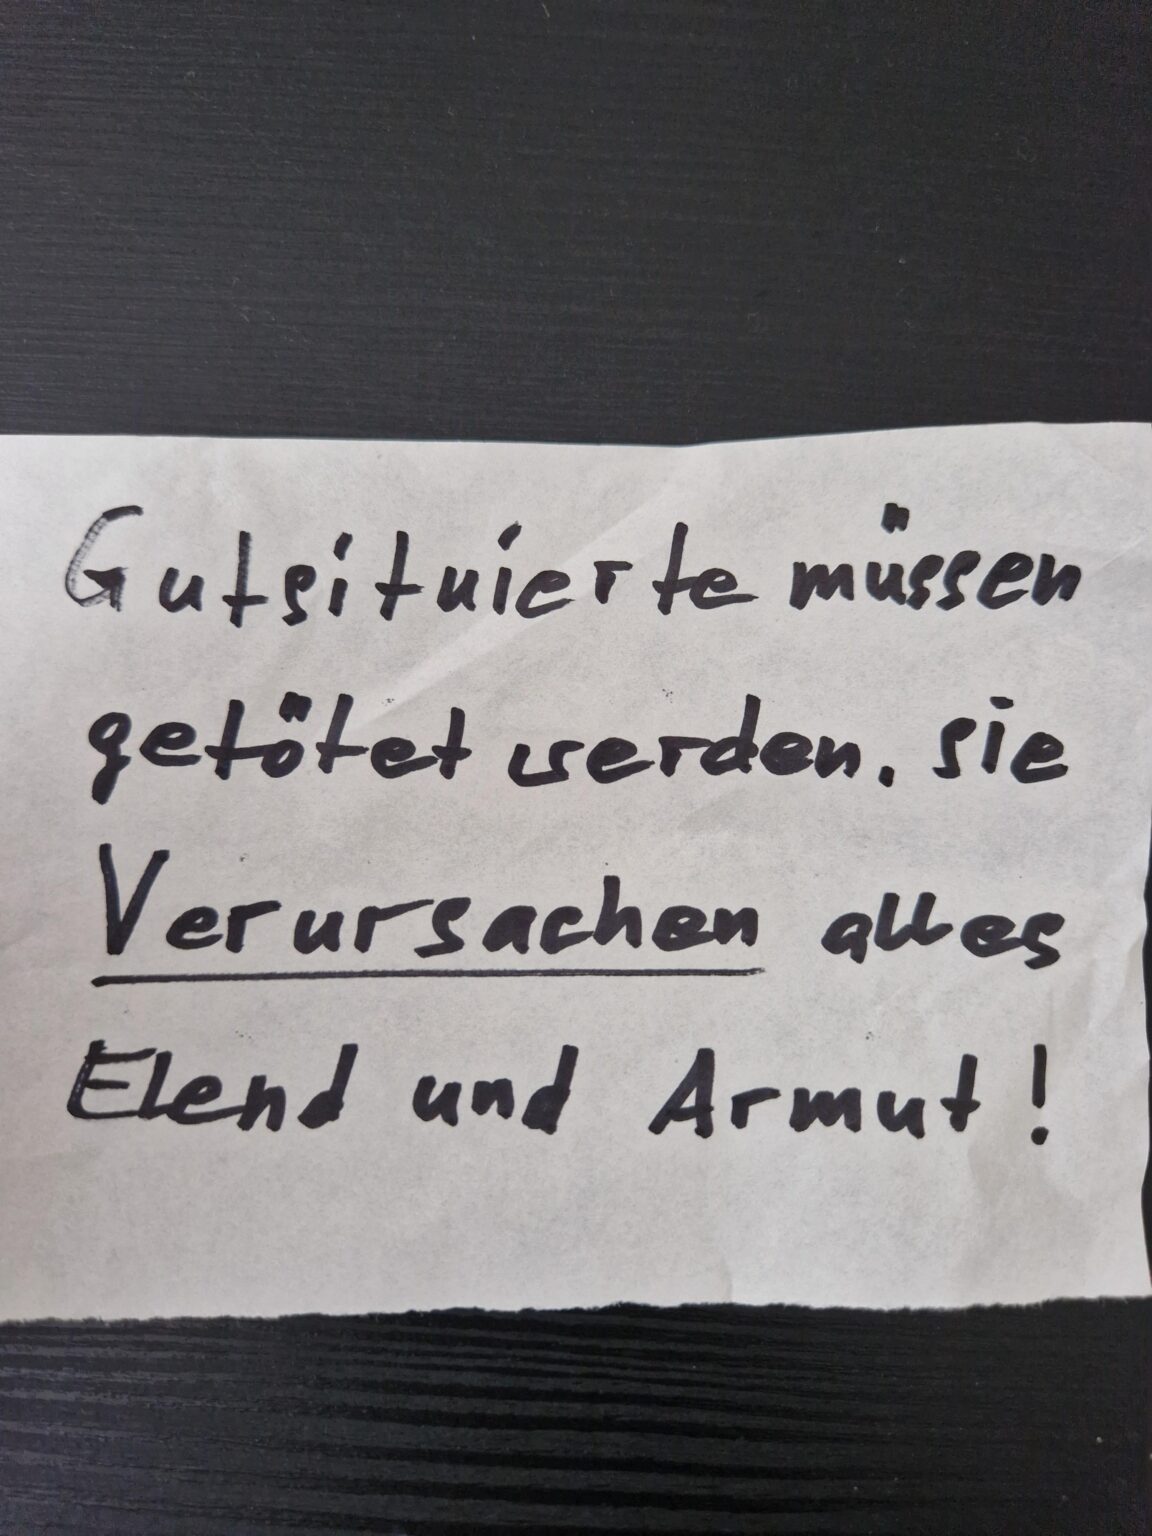 Gutsituierte müssen
getötet werden. sie
Verursachen alles
Elend und Armut!